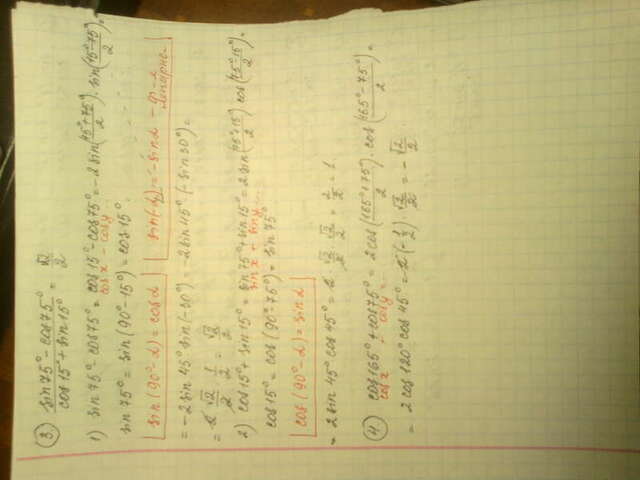 ③ sin75° - cos75° / cos15° + sin15° = √2/2
1) sin75° - cos75° = cos15° - cos75° = -2sin(15°+75°/2) · sin(15°-75°/2) =
cosx - cosy
sin75° = sin(90° - 15°) = cos15°
sin(90° - α) = cosα
sin(-α) = -sinα
= -2sin45° sin(-30°) = -2sin45° · (-sin30°) =
= 2 · √2/2 · 1/2 = √2/2
2) cos15° + sin15° = sin75° + sin15° = 2sin(75°+15°/2) cos(75°-15°/2) =
sinx + siny
cos15° = cos(90° - 75°) = sin75°
cos(90° - α) = sinα
= 2sin45° cos45° = 2 · √2/2 · √2/2 = 2/2 = 1
④ cos165° + cos75° = 2cos(165°+75°/2) · cos(165°-75°/2) =
cosx + cosy
= 2cos120° cos45° = 2(-1/2) · √2/2 = -√2/2